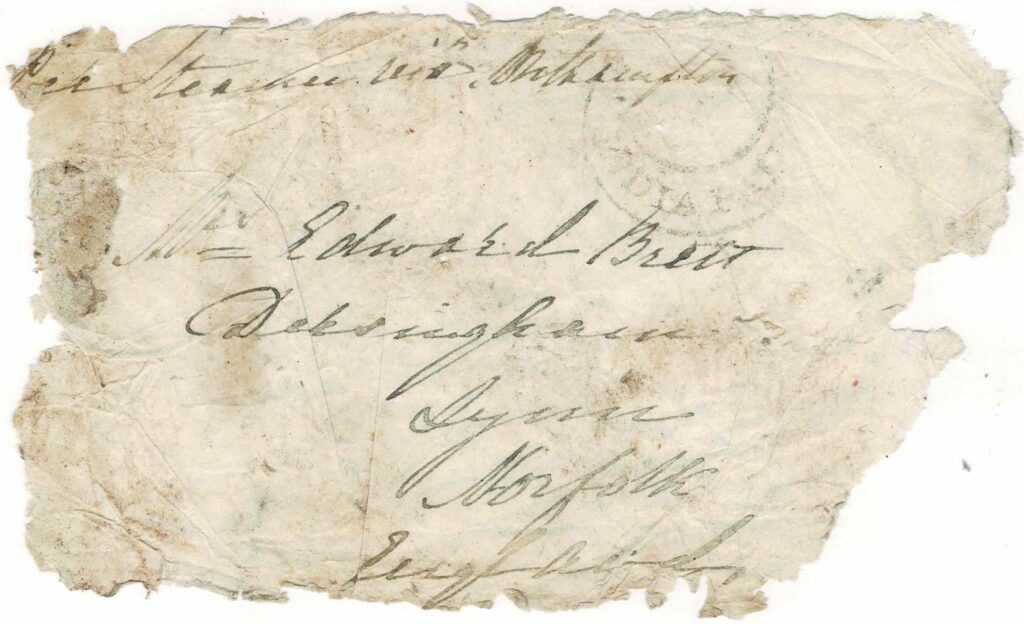 Per Steamer via Southampton
Mr Edward Brett
Dersingham
Lynn
Norfolk
England